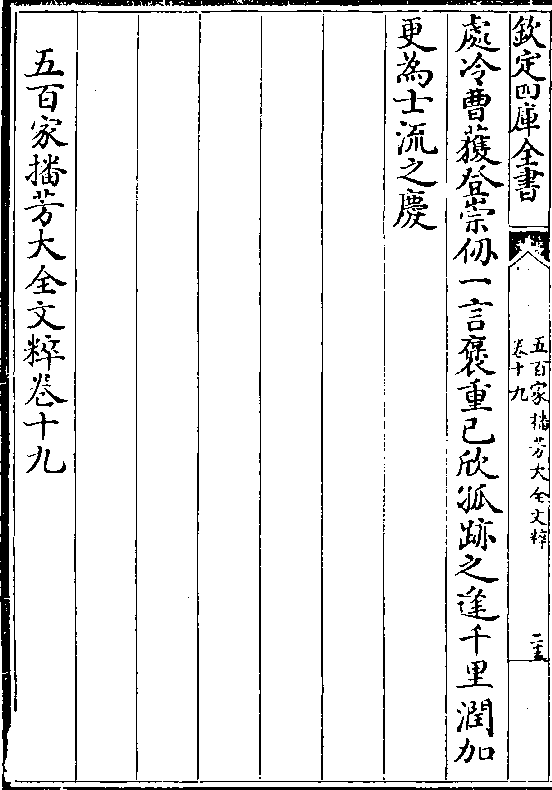 欽定四庫全書
五百家播芳大全文粹
卷十九
處冷曹獲登崇仭一言褒重已欣孤跡之逢千里潤加
更為士流之慶
五百家播芳大全文粹卷十九